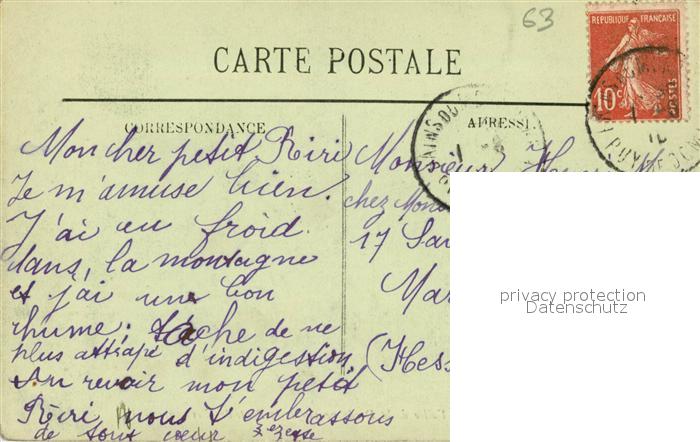 63
RÉPUBLIQUE FRANÇAISE
10c
POSTES
CARTE POSTALE
CORRESPONDANCE
ADRESSE
Mon cher petit Riri
Je m'amuse bien.
J'ai eu froid
dans, la montagne
et j'ai un bon
rhume; tâche de ne
plus attrape d'indigestion.
Au revoir mon petit
Riri nous t'embrassons
de tout cœur
Monsieur
chez
17
Mar
(Hess
PUY DE DOM
privacy protection
Datenschutz